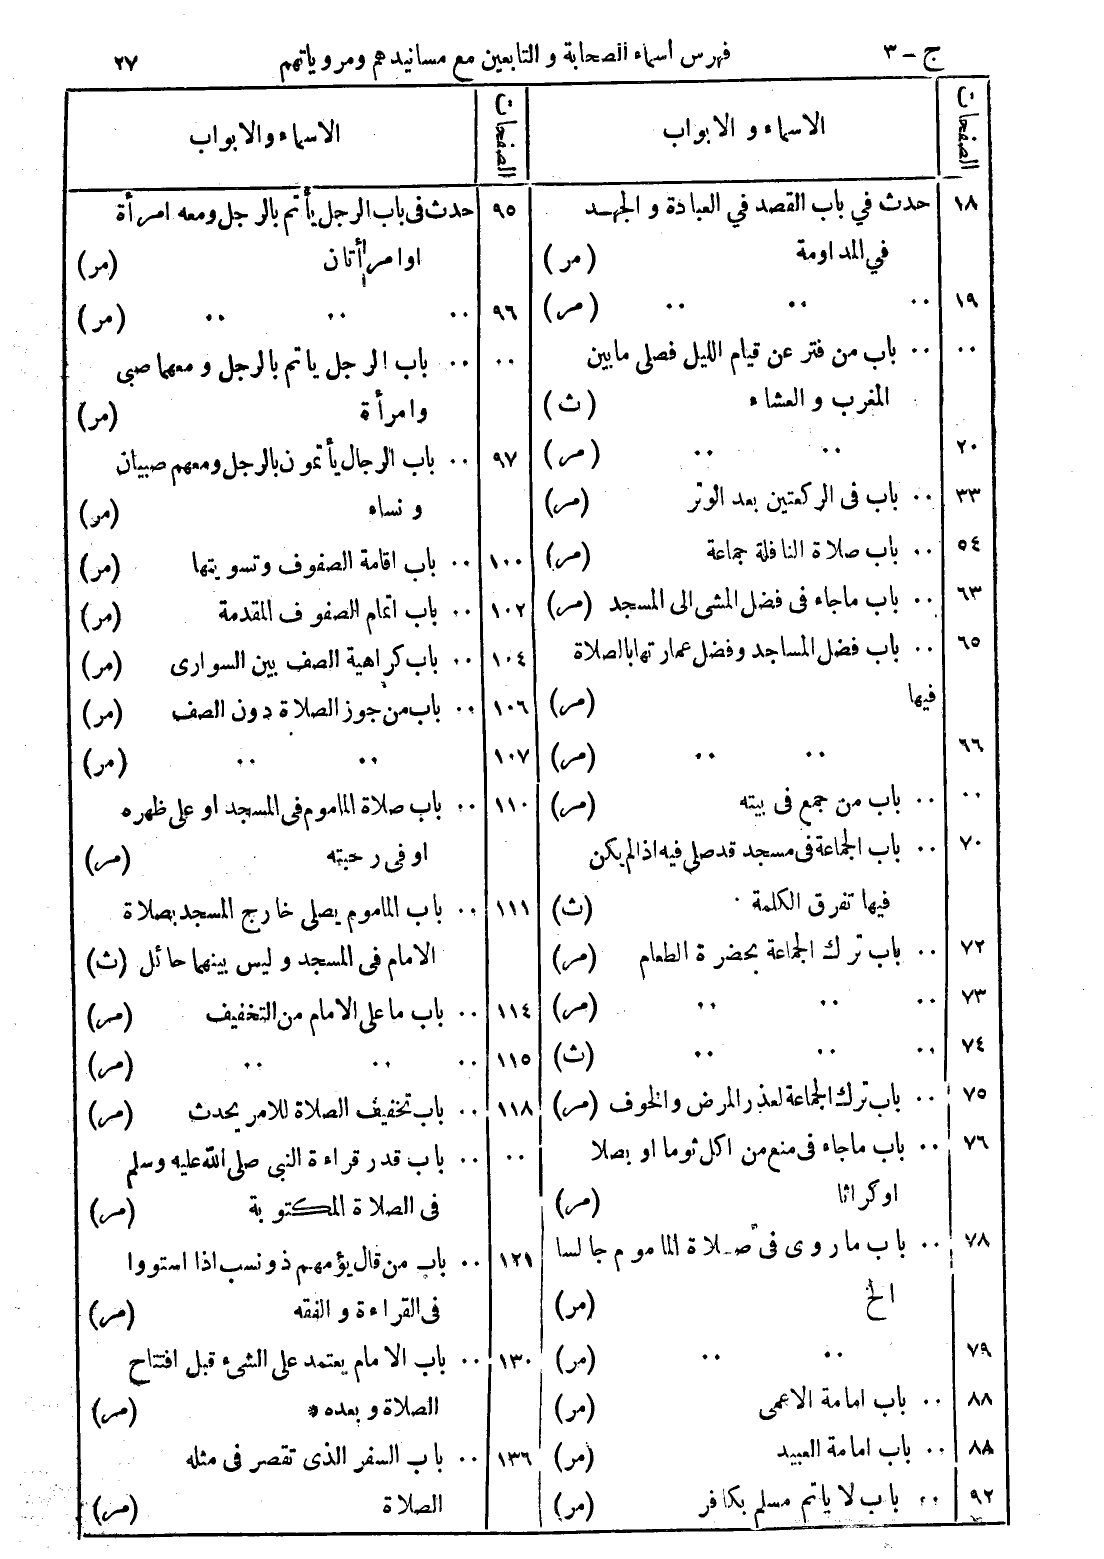 ج – ٣ فهرس أسماء الصحابة و التابعين مع مسانيدهم ومروياتهم ٢٧
الصفحات الاسماء و الابواب
١٨ حدث في باب القصد في العبادة و الجهـد
في المداومة (مر)
١٩ .. .. .. (مر)
.. .. باب من فتر عن قيام الليل فصلى مابين
المغرب و العشاء (ث)
٢٠ .. .. (مر)
٣٣ .. باب فى الركعتين بعد الوتر (مر)
٥٤ .. باب صلاة النافلة جماعة (مر)
٦٣ .. باب ماجاء فى فضل المشى الى المسجد (مر)
٦٥ .. باب فضل المساجد وفضل عمارتها بالصلاة
فيها (مر)
٦٦ .. .. (مر)
.. .. باب من جمع فى بيته (مر)
٧٠ .. باب الجماعة فى مسجد قد صلى فيه اذا لم يكن
فيها تفرق الكلمة (ث)
٧٢ .. باب ترك الجماعة بحضرة الطعام (مر)
٧٣ .. .. .. (مر)
٧٤ .. .. .. (ث)
٧٥ .. باب ترك الجماعة لعذر المرض والخوف (مر)
٧٦ .. باب ماجاء فى منع من اكل ثوما او بصلا
اوكراثا (مر)
٧٨ .. باب ماروى فى صـلاة الماموم جالسا
الخ (مر)
٧٩ .. .. (مر)
٨٨ .. باب امامة الاعمى (مر)
٨٨ .. باب امامة العبيد (مر)
٩٢ .. باب لا ياتم مسلم بكافر (مر)
الصفحات الاسماء والابواب
٩٥ حدث فى باب الرجل يأتم بالرجل ومعه امرأة
اوامرأتان (مر)
٩٦ .. .. .. (مر)
.. .. باب الرجل ياتم بالرجل ومعهما صبى
وامرأة (مر)
٩٧ .. باب الرجال يأتمون بالرجل ومعهم صبيان
ونساء (مر)
١٠٠ .. باب اقامة الصفوف وتسويتها (مر)
١٠٢ .. باب اتمام الصفوف المقدمة (مر)
١٠٤ .. باب كراهية الصف بين السوارى (مر)
١٠٦ .. باب من جوز الصلاة دون الصف (مر)
١٠٧ .. .. (مر)
١١٠ .. باب صلاة الماموم فى المسجد او على ظهره
او فى رحبته (مر)
١١١ .. باب الماموم يصلى خارج المسجد بصلاة
الامام فى المسجد و ليس بينهما حائل (ث)
١١٤ .. باب ما على الامام من التخفيف (مر)
١١٥ .. .. .. (مر)
١١٨ .. باب تخفيف الصلاة للامر يحدث (مر)
.. .. باب قدر قراءة النبي صلى الله عليه وسلم
فى الصلاة المكتوبة (مر)
١٢١ .. باب من قال يؤمهم ذو نسب اذا استووا
فى القراءة و الفقه (مر)
١٣٠ .. باب الامام يعتمد على الشىء قبل افتتاح
الصلاة و بعده * (مر)
١٣٦ .. باب السفر الذى تقصر فى مثله
الصلاة (مر)